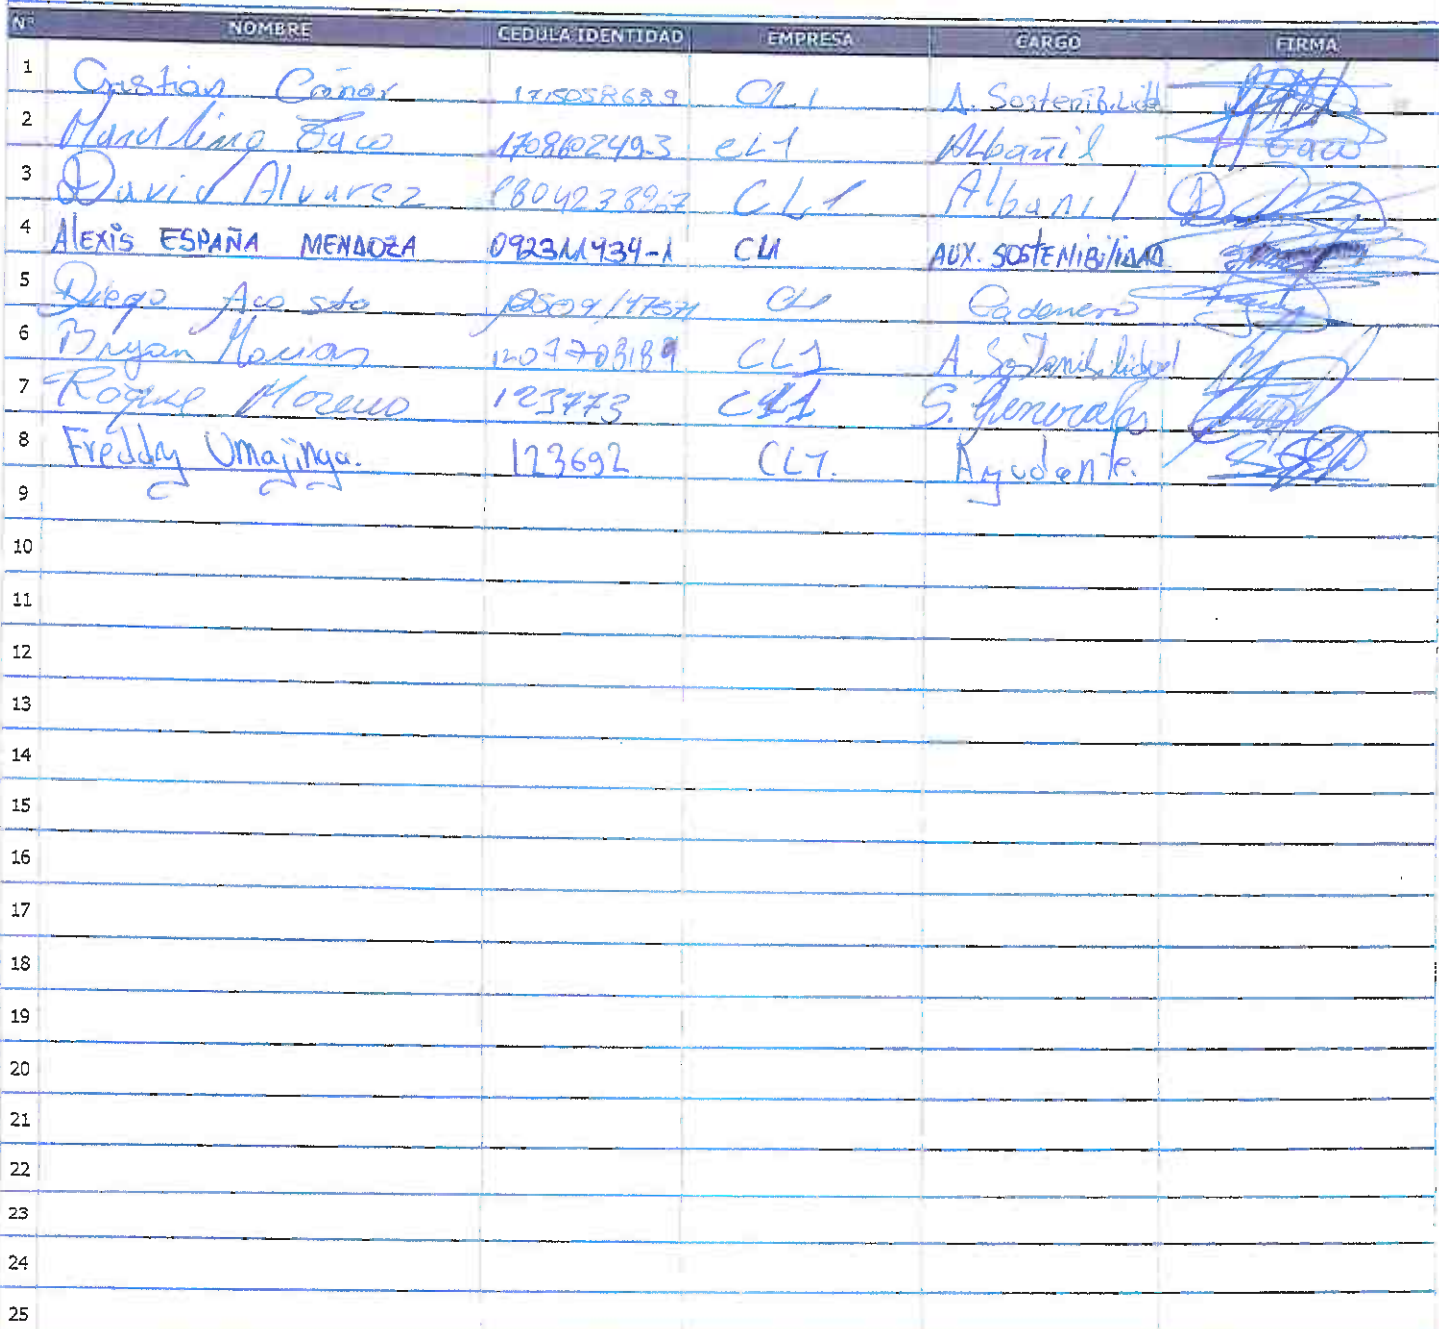 Nº NOMBRE CEDULA IDENTIDAD EMPRESA CARGO FIRMA
1 Cristian Cañar 1715058689 CL1 A. Sostenibilidad
2 Marcelino Taco 170860249-3 CL1 Albañil Taco
3 David Alvarez CL1 Albanil
4 AlExis ESPAÑA MENDOZA 092311434-1 CL1 AUX. SOSTENIBiliDAD
5 Diego Acosta CL1 Cadenero
6 Bryan Macias 1207703189 CL1 A. Sostenibilidad
7 Roque Moreno 123773 CL1 S. Generales
8 Freddy Umajinga. 123692 CL1. Ayudante.
9
10
11
12
13
14
15
16
17
18
19
20
21
22
23
24
25